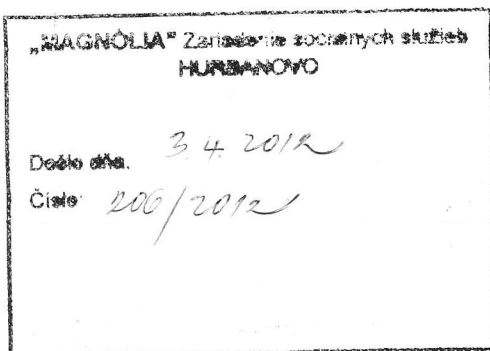 „MAGNÓLIA" Zariadenie sociálnych služieb
HURBANOVO
Došlo dňa. 3.4.2012
Číslo 206/2012